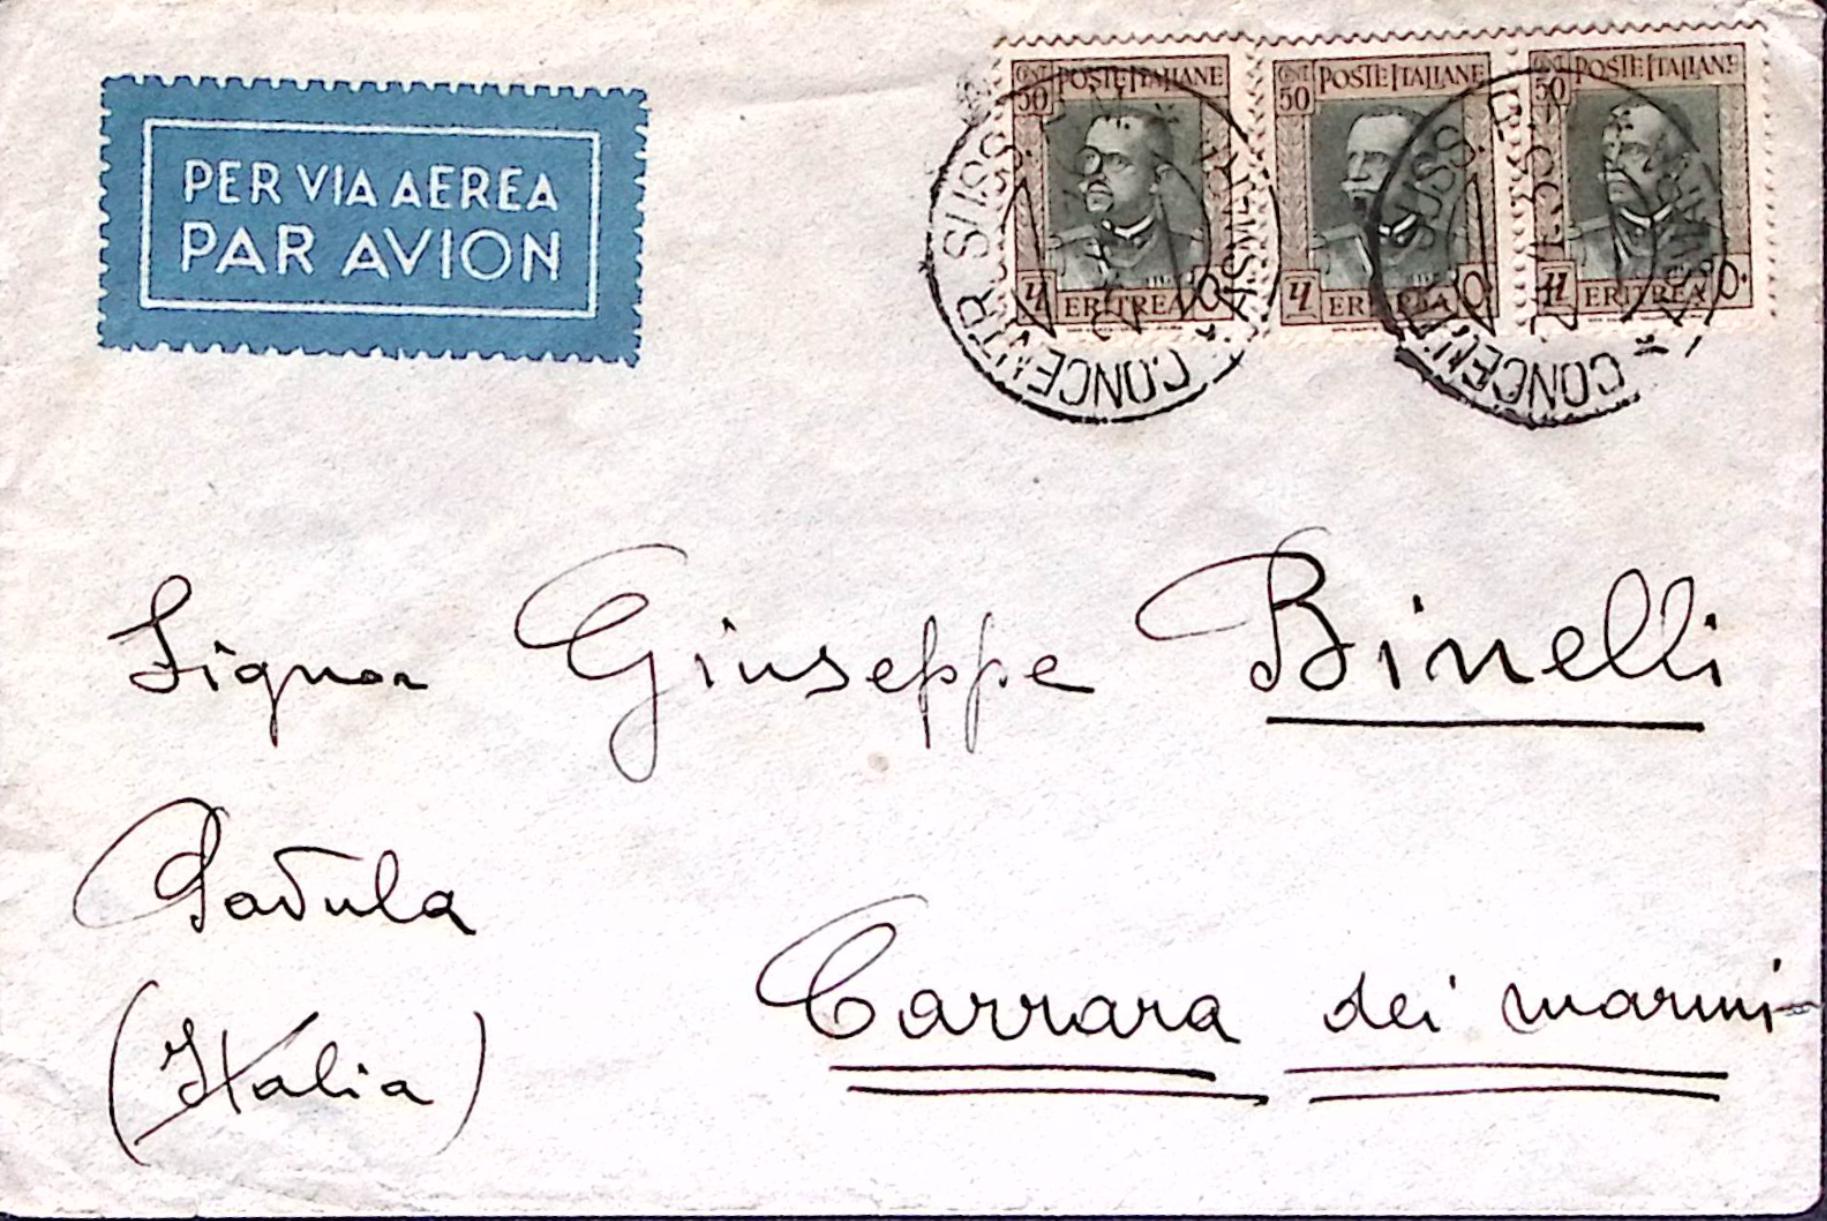 PER VIA AEREA
PAR AVION
CENT 50 POSTE ITALIANE
ERITREA
CENT 50 POSTE ITALIANE
ERITREA
CENT 50 POSTE ITALIANE
ERITREA
ASMARA * CONCENTR SUSS.
ASMARA * CONCENTR SUSS.
Signor Giuseppe Binelli
Padula
Carrara dei marmi
(Italia)